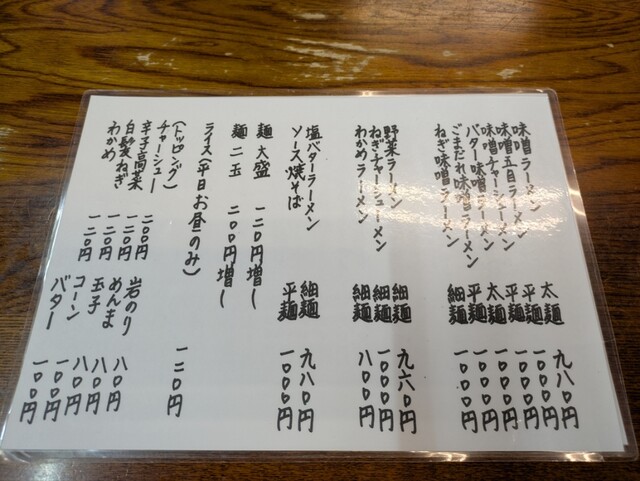 味噌ラーメン 太麺 九八〇円
味噌五目ラーメン 平麺 一〇〇〇円
味噌チャーシューメン 平麺 一〇〇〇円
バター味噌ラーメン 太麺 一〇〇〇円
ごまだれ味噌ラーメン 平麺 一〇〇〇円
ねぎ味噌ラーメン 細麺 一〇〇〇円
野菜ラーメン 細麺 九六〇円
ねぎチャーシューメン 細麺 一〇〇〇円
わかめラーメン 細麺 八〇〇円
塩バターラーメン 細麺 九八〇円
ソース焼そば 平麺 一〇〇〇円
麺大盛 一二〇円増し
麺二玉 二〇〇円増し
ライス(平日お昼のみ) 一二〇円
(トッピング)
チャーシュー 二〇〇円
辛子高菜 一二〇円
白髪ねぎ 一二〇円
わかめ 一二〇円
岩のり 八〇円
めんま 八〇円
玉子 八〇円
コーン 一〇〇円
バター 一〇〇円